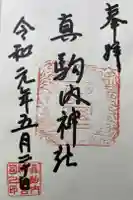 奉拝
真駒内神社
令和元年五月二日